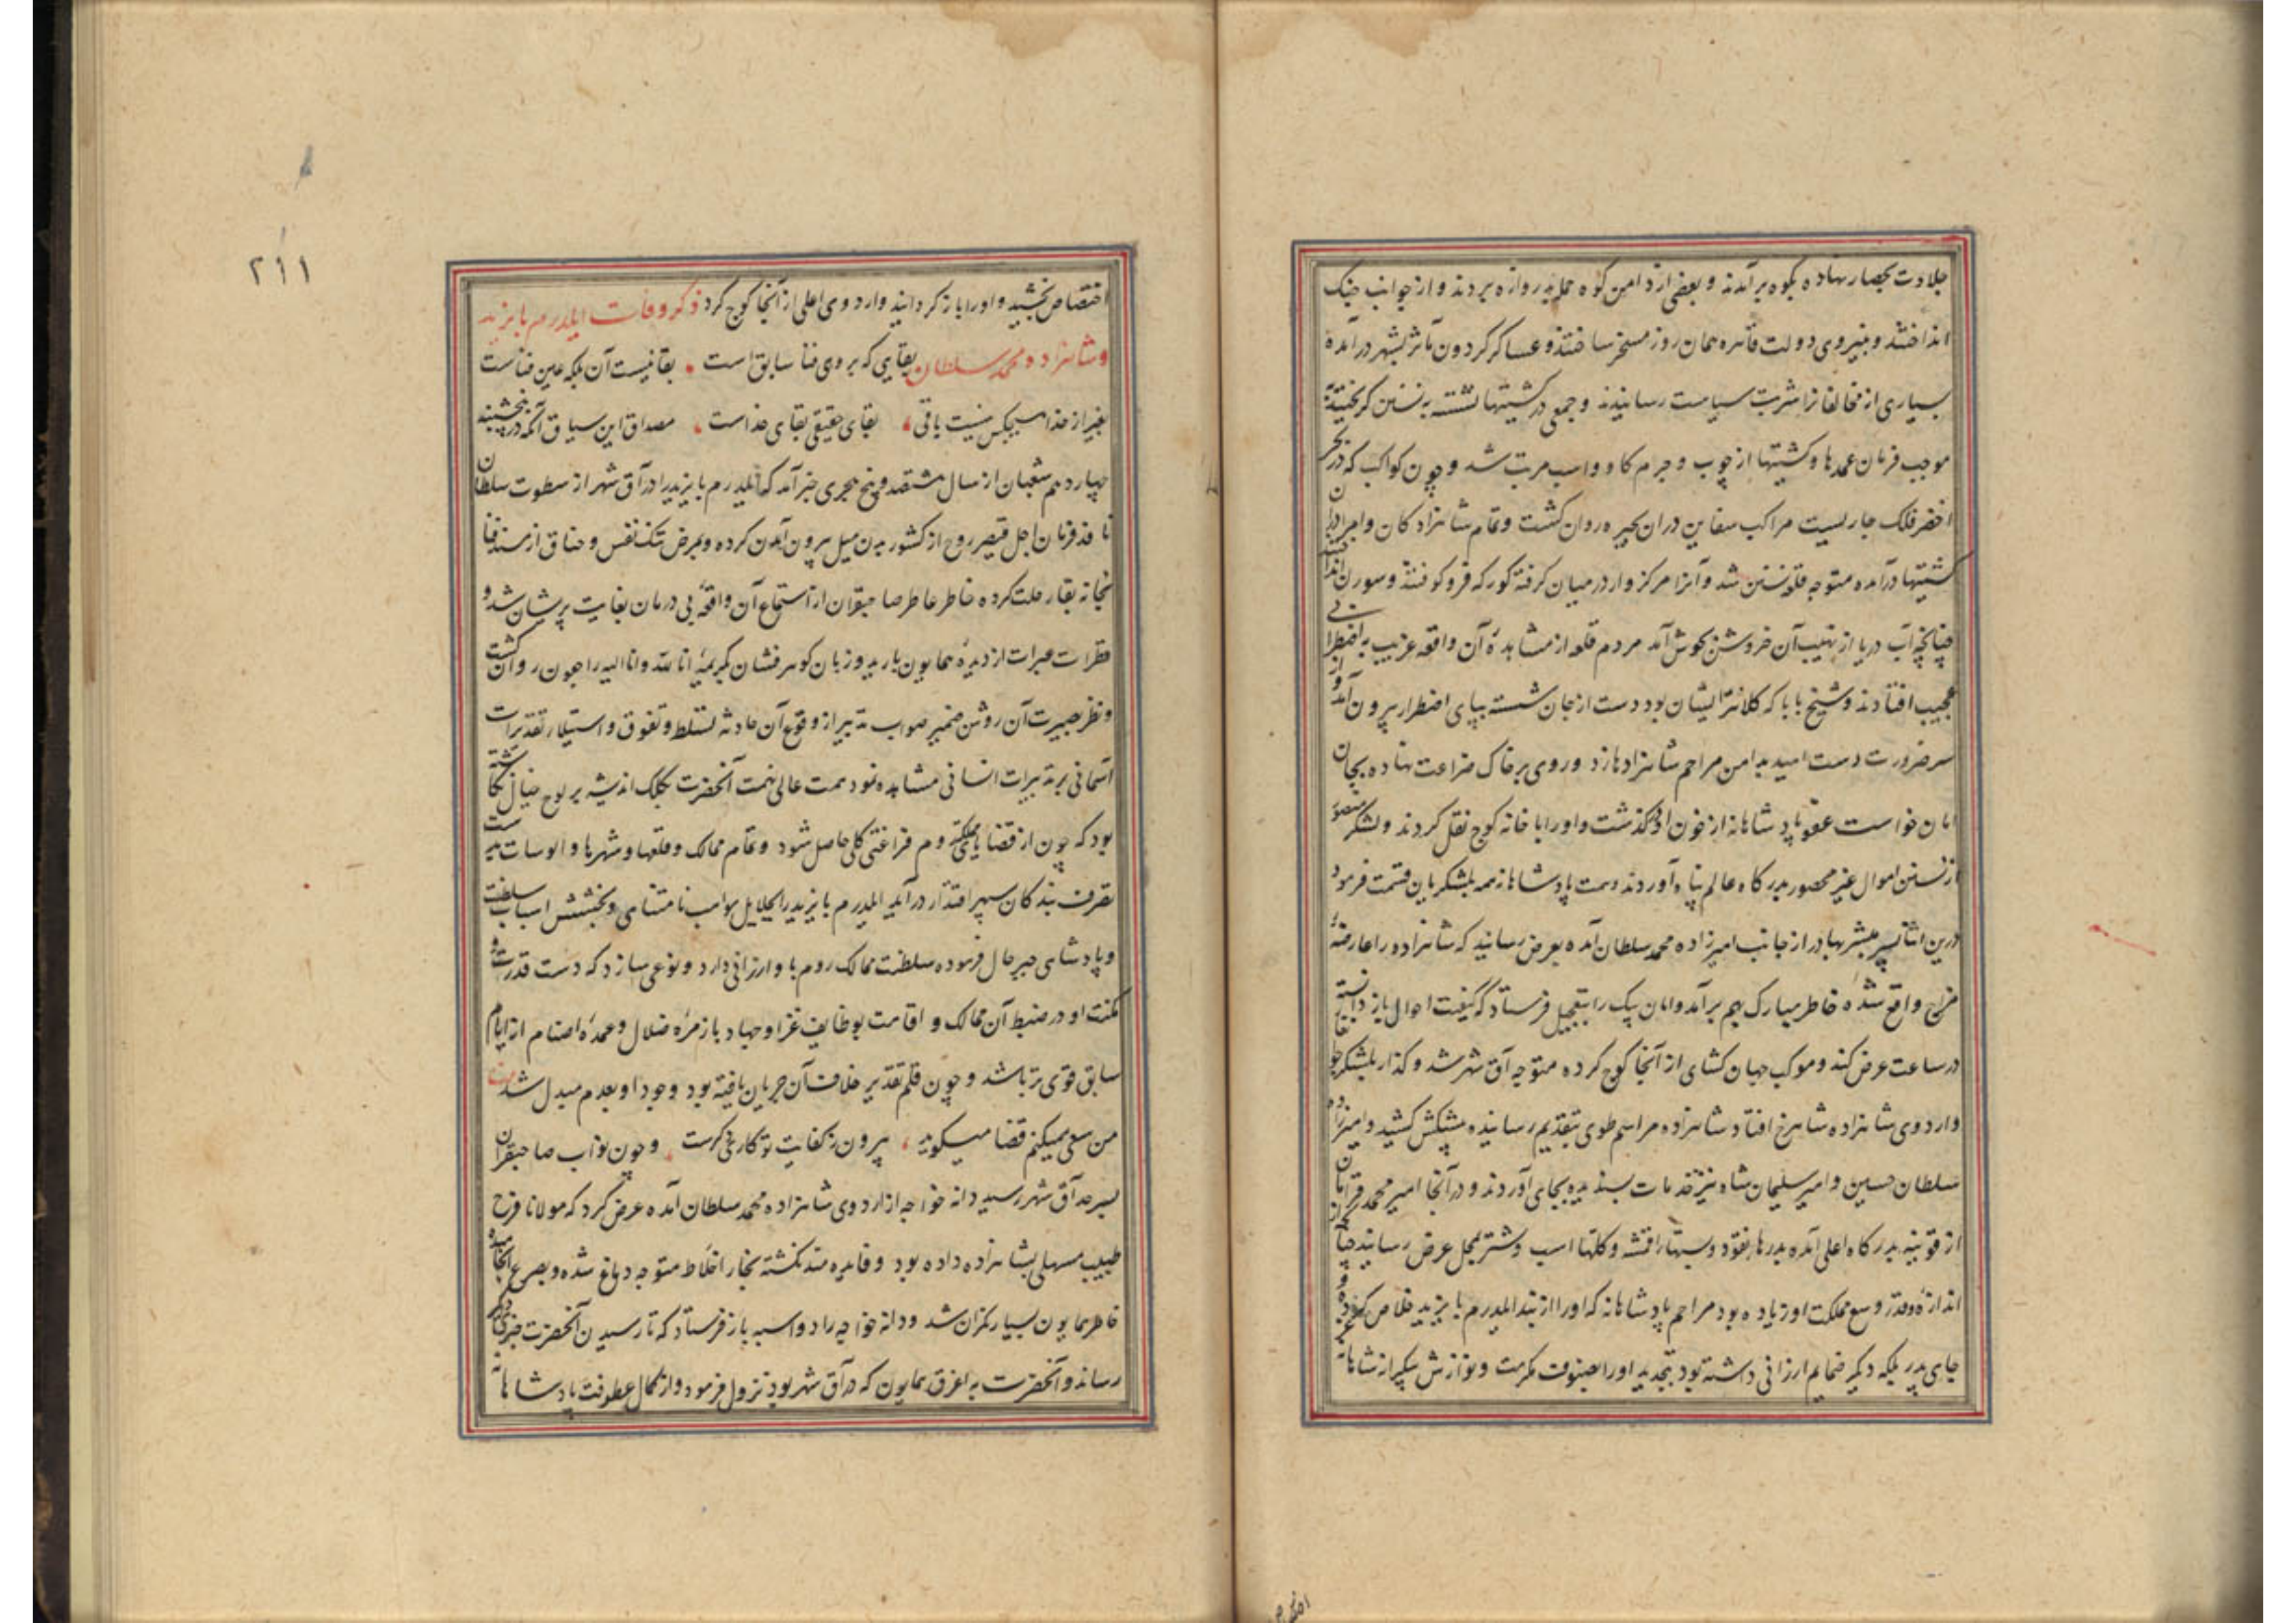 جلادت بحصار نهاده بکوه برآمدند و بعضی از دامن کوه حمل بدروازه بردند و از جوانب جنک
انداختند و بنیروی دولت قاهره همان روز مسخر ساختند و عساکر کردون مآثر بشهر درآمده
بسیاری از مخالفانرا شربت سیاست رسانیدند و جمعی در کشتیها نشسته به نسن کریختند
موجب فرمان عمدها و کشتیها از چوب و چرم کاو و اسب مرتب شد و چون کواکب که در بحر
اخضر فلک جاریست مراکب سفاین دران بحیره روان کشت و تمام شاهزادکان و امرا دران
کشتیها درآمده متوجه قلعه نسن شد و آنرا مرکزوار در میان کرفته کورکه فرو کوفتند و سورن انداختند
چنانچه آب دریا از نهیب آن خروشش بجوش آمد مردم قلعه از مشاهدهٔ آن واقعه غریب به اضطرابی
عجیب افتادند و شیخ بابا که کلانتر ایشان بود دست از جان شسته بپای اضطرار بیرون آمد و از
سر ضرورت دست امید بدامن مراحم شاهزادها زد و روی بر خاک ضراعت نهاده بجان
امان خواست عفو پادشاهانه از خون او درکذشت و او را با خانه کوچ نقل کردند و لشکر منصور
از نسن اموال غیر محصور بدرکاه عالم پناه آوردند و همت پادشاهانه همه بلشکریان قسمت فرمود
درین اثنا پسر مبشر بهادر از جانب امیرزاده محمد سلطان آمده بعرض رسانید که شاهزاده را عارضهٔ
مزاج واقع شده خاطر مبارک بهم برآمد و امان بیک را بتعجیل فرستاد که کیفیت احوال باز دانسته
در ساعت عرض کند و موکب جهان کشای از آنجا کوچ کرده متوجه آق شهر شد و کذار بلشکر جرانغار
و اردوی شاهزاده شاهرخ افتاد شاهزاده مراسم طوی بتقدیم رسانیده پیشکش کشید و امیرزاده
سلطان حسین و امیر سلیمان شاه نیز خدمات پسندیده بجای آوردند و در آنجا امیر محمد قرامان
از قونیه بدرکاه اعلی آمده بدرهای نقود و بستهای اقمشه و کلهای اسب و شتر بمحل عرض رسانید چنانکه از
اندازهٔ قدر و وسع مملکت او زیاده بود مراحم پادشاهانه که او را از بند ایلدرم بایزید خلاص کرده و
جای پدر بلکه دیکر ضمایم ارزانی داشته بود بتجدید او را بصنوف مکرمت و نوازش بیکرانه شاهانه
۲۱۱
اختصاص بخشید و او را باز کردانید و اردوی اعلی از آنجا کوچ کرد ذکر وفات ایلدرم بایزید
و شاهزاده محمد سلطان بقایی که بر وی فنا سابق است بقا نیست آن بلکه عین فناست
بغیر از خدا هیچکس نیست باقی بقای حقیقی بقای خداست مصداق این سیاق آنکه در پنجشنبه
چهاردهم شعبان از سال هشتصد و پنج هجری خبر آمد که ایلدرم بایزید را در آق شهر از سطوت سلطان
نافذ فرمان اجل قیصر روح از کشور بدن میل بیرون آمدن کرده و بمرض تنک نفس و خناق از مسند فنا
بخانه بقا رحلت کرده خاطر عاطر صاحبقران از استماع آن واقعهٔ بی درمان بغایت پریشان شد و
قطرات عبرات از دیدهٔ همایون بارید و زبان کوهرفشان بکریمهٔ انا لله و انا الیه راجعون روان کشت
و نظر بصیرت آن روشن ضمیر صواب تدبیر از وقوع آن حادثه تسلط و تفوق و استیلاء تقدیرات
آسمانی بر تدبیرات انسانی مشاهده نمود همت عالی نهمت آنحضرت بکلک اندیشه بر لوح خیال نکاشته
بود که چون از قضایای مملکت روم فراغتی کلی حاصل شود و تمام ممالک و قلعها و شهرها و الوسات بدست
تصرف بندکان سپهر اقتدار درآید ایلدرم بایزید را بجلایل مواهب نامتناهی و بخشش اسباب سلطنت
و پادشاهی جبر حال فرموده سلطنت ممالک روم باو ارزانی دارد و نوعی سازد که دست قدرت و
مکنت او در ضبط آن ممالک و اقامت بوظایف غزا و جهاد با زمرهٔ ضلال و عبدهٔ اصنام از ایام
سابق قوی تر باشد و چون قلم تقدیر خلاف آن جریان یافته بود وجود او بعدم مبدل شد
من سعی همیکنم قضا میکوید بیرون ز کفایت تو کاری دکرست و چون نواب صاحبقران
بسرحد آق شهر رسید دانه خواجه از اردوی شاهزاده محمد سلطان آمده عرض کرد که مولانا فرخ
طبیب مسهلی بشاهزاده داده بود و فایده مند نکشته بخار اخلاط متوجه دماغ شده و بصرع انجامیده
خاطر همایون بسیار نکران شد و دانه خواجه را دو اسبه باز فرستاد که تا رسیدن آنحضرت خبر دیکر
رساند و آنحضرت به اغرق همایون که در آق شهر بود نزول فرمود و از کمال عطوفت پادشاهانه